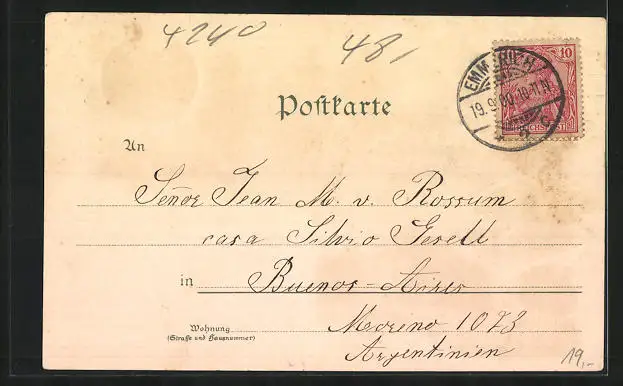 4240
481
10
EMMERICH
19.9.00.10-11N.
REICHSPOST
Postkarte
An
Señor Jean M. v. Rossum
casa Silvio Gesell
in Buenos-Aires
Wohnung
(Straße und Hausnummer)
Moreno 1073
Argentinien
19,-